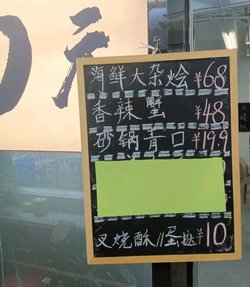 海鲜大杂烩¥68
香辣蟹¥48
砂锅青口¥19.9
叉烧酥//蛋挞¥10